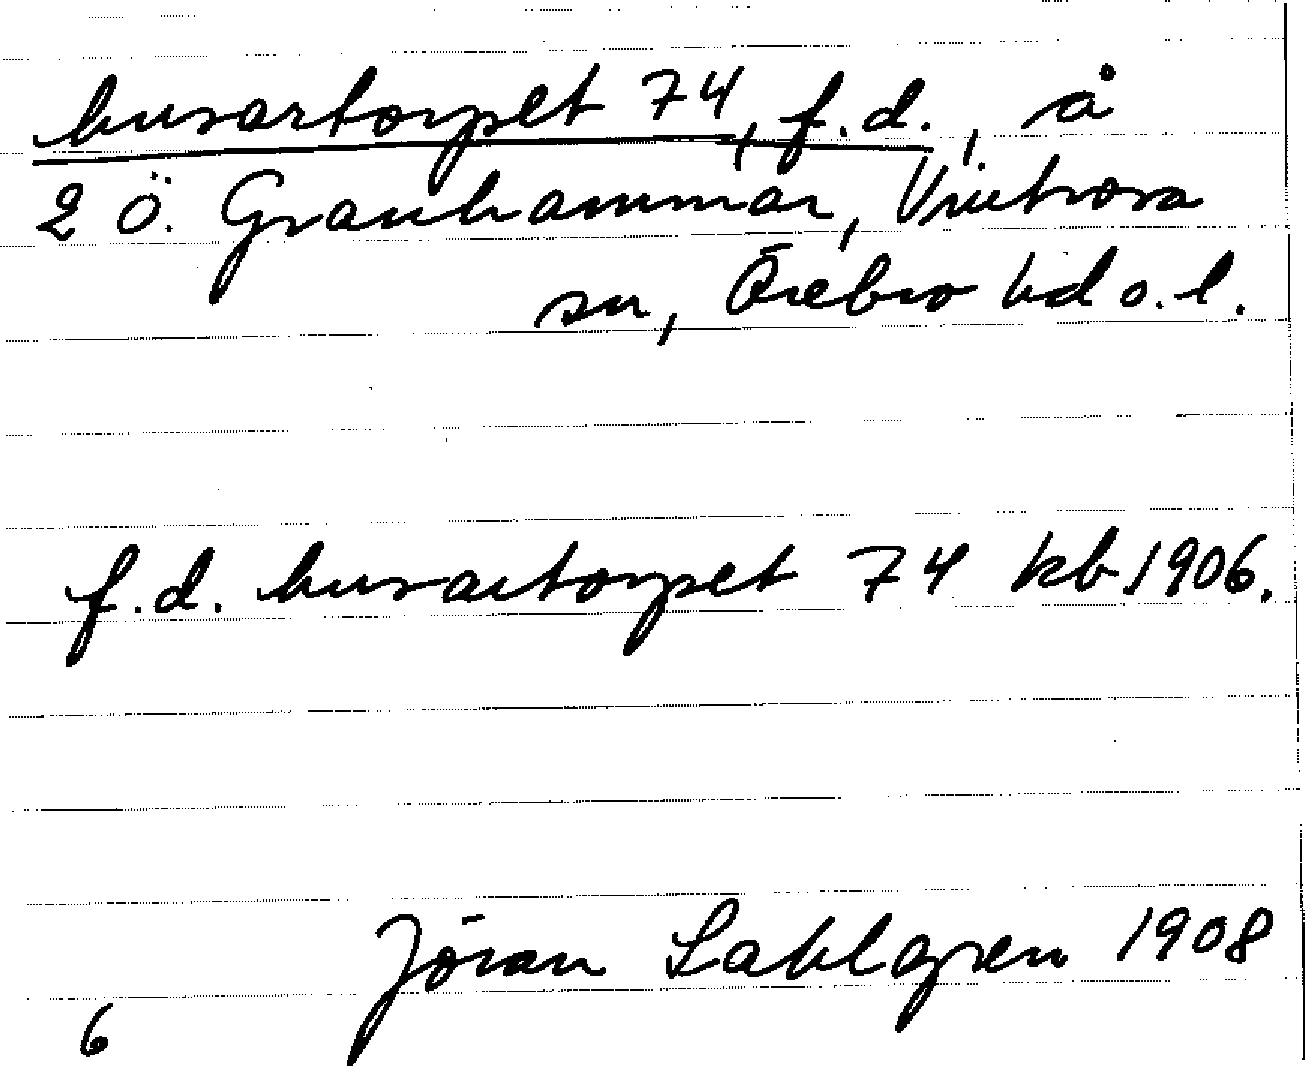 husartorpet 74, f.d., å
2 Ö. Granhammar, Vintrosa
sn, Örebro hd o. l.
f.d. husartorpet 74 kb 1906.
Jöran Sahlgren 1908
6